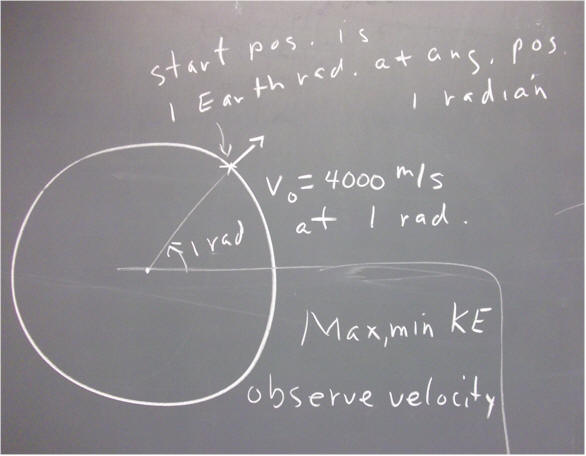 start pos. is
1 Earth rad. at ang. pos.
1 radian
V₀ = 4000 m/s
at 1 rad.
1 rad
Max,min KE
observe velocity